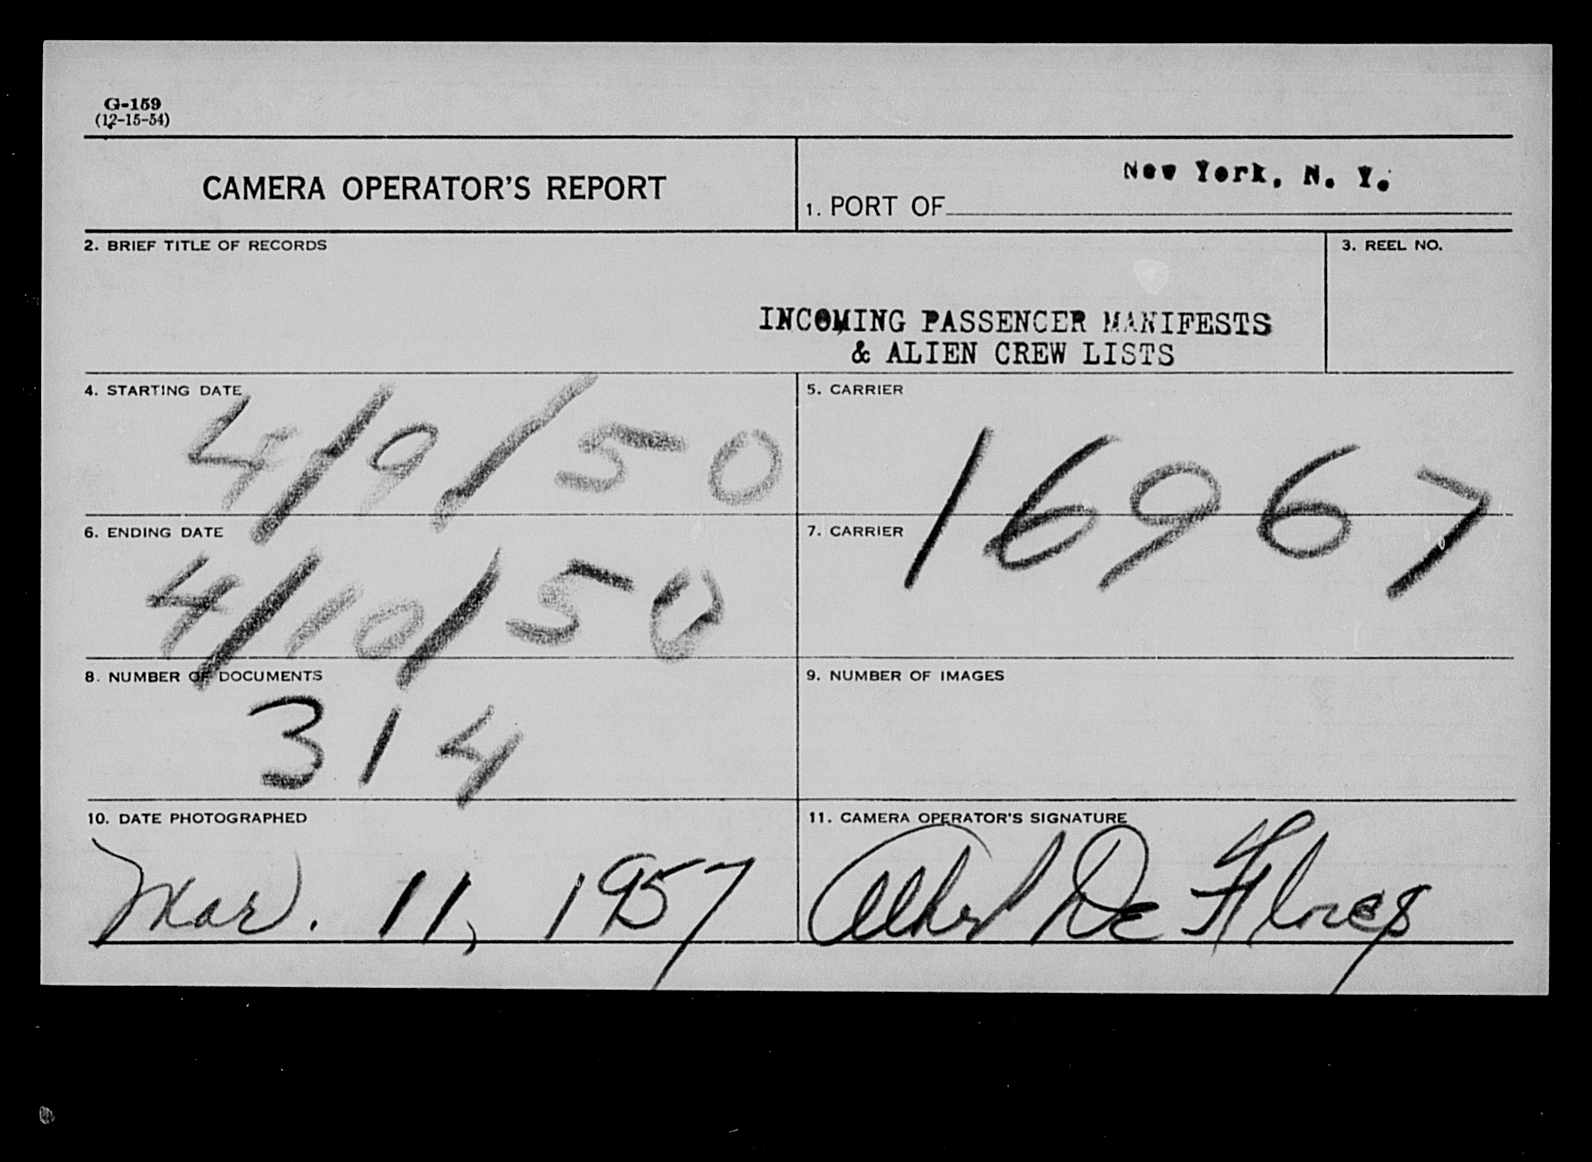 G-159
(12-15-54)
CAMERA OPERATOR'S REPORT
New York, N. Y.
1. PORT OF
2. BRIEF TITLE OF RECORDS
3. REEL NO.
INCOMING PASSENGER MANIFESTS
& ALIEN CREW LISTS
4. STARTING DATE
4/9/50
5. CARRIER
16967
6. ENDING DATE
4/10/50
7. CARRIER
8. NUMBER OF DOCUMENTS
314
9. NUMBER OF IMAGES
10. DATE PHOTOGRAPHED
Mar. 11, 1957
11. CAMERA OPERATOR'S SIGNATURE
Albert De Flores